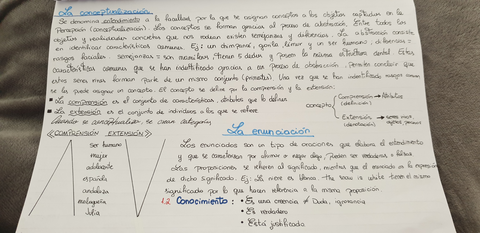 La conceptualización
Se denomina entendimiento a la facultad por la que se asignan conceptos a los objetos captados en la
Percepción (conceptualización). Los conceptos se forman gracias al proceso de abstracción. Entre todos los
objetos y realidades concretas que nos rodean existen semejanzas y diferencias. La abstracción consiste
en identificar características comunes. Ej: un chimpancé, gorila, lémur y un ser humano, diferencias =
rasgos faciales. semejanzas = son mamíferos, tienen 5 dedos y poseen la misma estructura dental. Estas
características comunes que se han identificado gracias a ese proceso de abstracción. Permiten concluir que
estos seres vivos forman parte de un mismo conjunto (primates). Una vez que se han identificado rasgos comunes
se les puede asignar un concepto. El concepto se define por la comprensión y la extensión:
La comprensión es el conjunto de características, atributos que lo definen
La extensión es el conjunto de individuos a los que se refiere
Cuando se conceptualiza se crean categorías
concepto
Comprensión → Atributos
(definición)
Extensión → seres vivos,
objetos, personas
(denotación)
<<COMPRENSIÓN EXTENSIÓN>>
Ser humano
mujer
adolescente
española
andaluza
malagueña
Julia
La enunciación
Los enunciados son un tipo de oraciones que elabora el entendimiento
y que se caracterizan por afirmar o negar algo. Pueden ser verdaderos o falsos
Las proposiciones se refieren al significado, mientras que el enunciado es la expresión
de dicho significado. Ej: La nieve es blanca. The snow is white tienen el mismo
significado por lo que hacen referencia a la misma proposición.
1.2 Conocimiento:
• Es una creencia ≠ Duda, ignorancia
• Es verdadero
• Está justificado